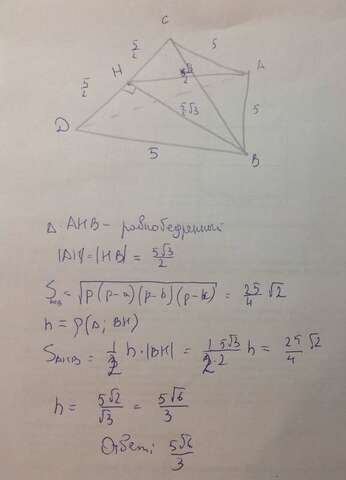 C
5/2
5
H
5√3
A
5/2
5/2 √3
5
D
5
B
Δ AHB - равнобедренный
|AH| = |HB| = 5√3/2
S = √p(p-a)(p-b)(p-c) = 25/4 √2
h = ρ(A; BH)
S_AHB = 1/2 h·|BH| = 1/2 5√3/2 h = 25/4 √2
h = 5√2/√3 = 5√6/3
Ответ: 5√6/3